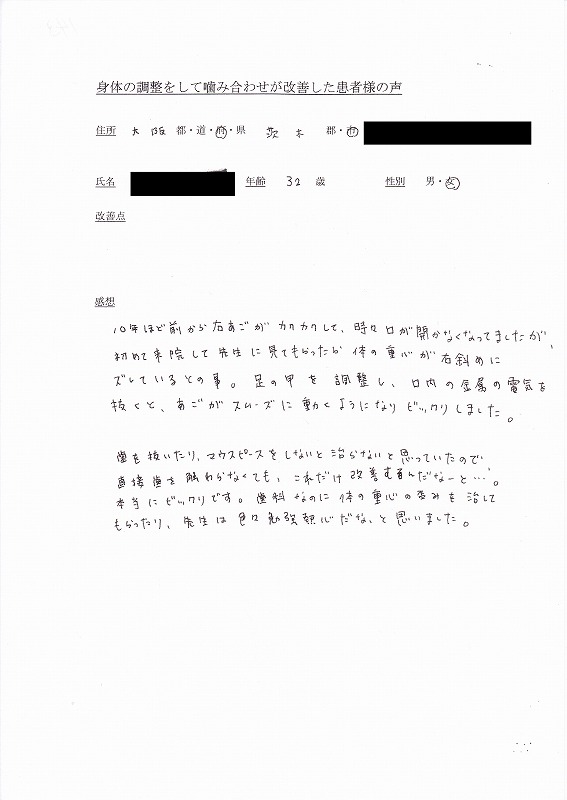 身体の調整をして噛み合わせが改善した患者様の声
住所 大阪 都・道・府・県 茨木 郡・市
氏名 年齢 32 歳 性別 男・女
改善点
感想
10年ほど前から右あごがカクカクして、時々口が開かなくなってましたが、
初めて来院して先生に見てもらったら体の重心が右斜めに
ズレているとの事。足の甲を調整し、口内の金属の電気を
抜くと、あごがスムーズに動くようになりビックリしました。
歯を抜いたり、マウスピースをしないと治らないと思っていたので
直接歯を触わらなくても、これだけ改善するんだなーと…。
本当にビックリです。歯科なのに体の重心の歪みを治して
もらったり、先生は色々勉強熱心だな、と思いました。